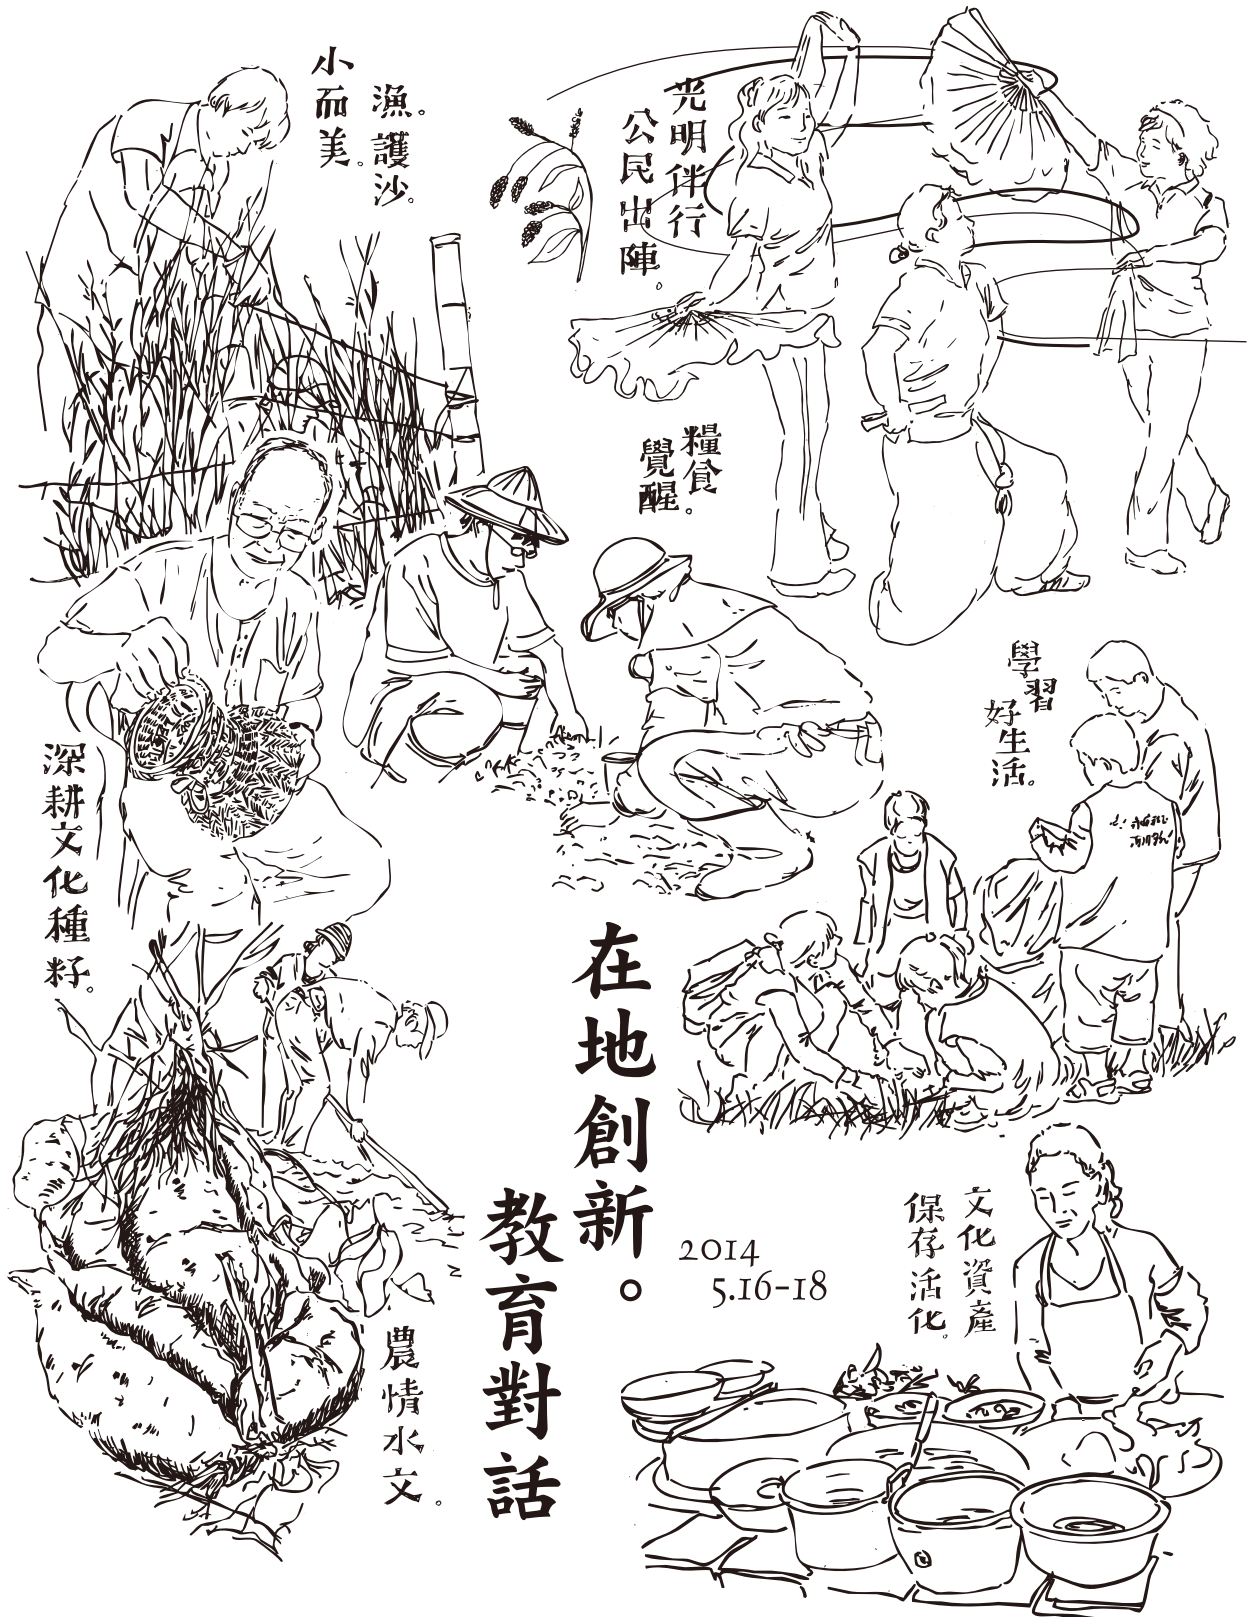 小而美。
漁。護沙。
光明伴行
公民出陣。
糧食
覺醒。
學習
好生活。
深耕文化種籽。
在地創新。
教育對話
2014
5.16-18
文化資產
保存活化。
農情水文。